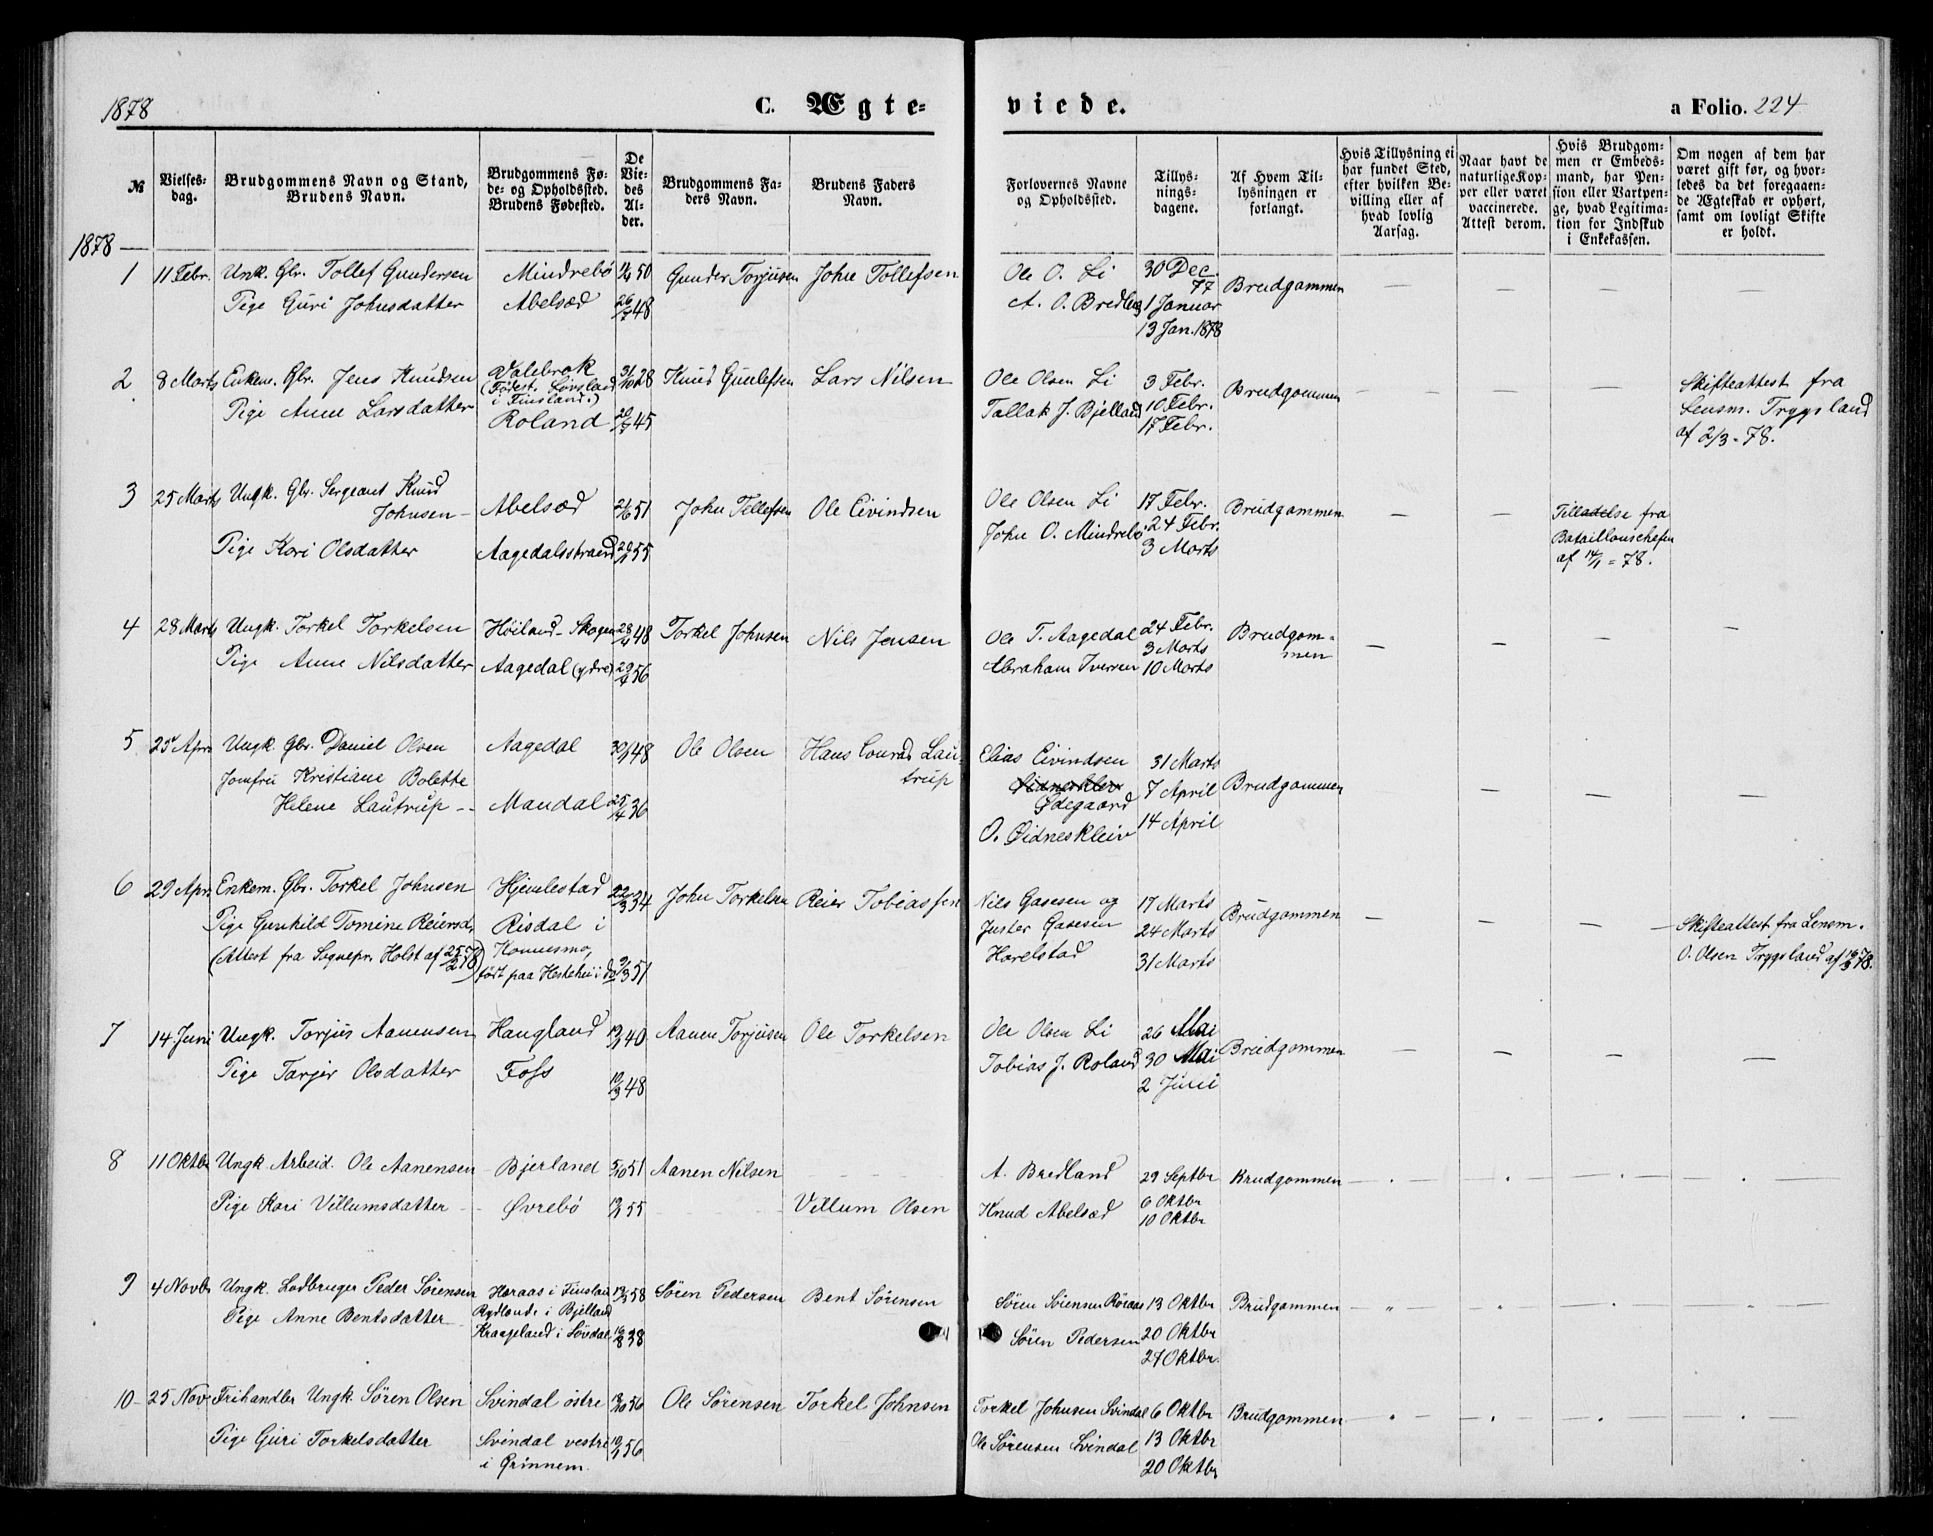 1878
C. Ægte-
viede.
a Folio. 224
№
Vielses-
dag.
Brudgommens Navn og Stand,
Brudens Navn.
Brudgommens Fø-
de- og Opholdssted.
Brudens Fødested.
De
Vie-
des
Al-
der.
Brudgommens Fa-
ders Navn.
Brudens Faders
Navn.
Forlovernes Navne
og Opholdssted.
Tillys-
nings-
dagene.
Af Hvem Til-
lysningen er
forlangt.
Hvis Tillysning ei
har fundet Sted,
efter hvilken Be-
villing eller af
hvad lovlig
Aarsag.
Naar havt de
naturlige Kop-
per eller været
vaccinerede.
Attest derom.
Hvis Brudgom-
men er Embeds-
mand, har Pen-
sion eller Vartpen-
ge, hvad Legitima-
tion for Indskud
i Enkekassen.
Om nogen af dem har
været gift før, og hvor-
ledes da det foregaaen-
de Ægteskab er ophørt,
samt om lovligt Skifte
er holdt.
1878 —
1 11 Febr. Unk. Gbr. Tollef Gundersen Mindrebø 50 Gunder Torjusen John Tollefsen
Pige Guri Johnsdatter Abelsæd 26/7 48
Ole O. Li 30 Dec. 77 Brudgommen — — — —
A. O. Bredland 1 Januar
13 Jan. 1878
2 8 Marts Enkem. Gbr. Jens Knudsen Valebrok 31/10 28 Knud Gunlefsen Lars Nilsen
(Fødest. Løvsland
i Finsland.)
Pige Anne Larsdatter Roland 45
Ole Olsen Li 3 Febr. Brudgommen — — — Skifteattest fra
Tallak J. Bjelland 10 Febr. Lensm. Trygsland
17 Febr. af 2/3 - 78.
3 25 Marts Ungk. Gbr. Sergeant Knud
Johnsen — Abelsæd 51 John Tellefsen Ole Eivindsen
Pige Kari Olsdatter Aagedalsstrand 55
Ole Olsen Li 17 Febr. Brudgommen — — Tilladelse fra —
John O. Mindrebø 24 Febr. Bataillonschefen
3 Marts af 14/1 - 78.
4 28 Marts Ungk. Torkel Torkelsen Høiland-Skogen 48 Torkel Johnsen Nils Jensen
Pige Anne Nilsdatter Aagedal (ydre) 56
Ole T. Aagedal 24 Febr. Brudgom-
men — — — —
3 Marts
Abraham Iversen 10 Marts
5 25 Apr. Ungk. Gbr. Daniel Olsen Aagedal 48 Ole Olsen Hans Conrad Lau-
trup
Jomfru Kristiane Bolette
Helene Lautrup — Mandal 25/4 36
Elias Eivindsen 31 Marts
Ødegaard 7 April Brudgommen — — —
O. Øidneskleiv 14 April
6 29 Apr. Enkem. Gbr. Torkel Johnsen Hjemlestad 22/3 34 John Torkelsen Reier Tobiassen
Pige Gunhild Tomine Reiersd. Risdal i
(Attest fra Sognepr. Holst af 25/2 78) Konnesmo,
født paa 51
Nils Gasesen og 17 Marts Brudgommen — — — Skifteattest fra Lensm.
Juster Gasesen 24 Marts O. Olsen Trygsland af 78.
Harelstad 31 Marts
7 14 Juni Ungk. Torjus Aanensen Haugland 40 Aanen Torjusen Ole Torkelsen
Pige Tarjer Olsdatter Foss 10/3 48
Ole Olsen Li 26 Mai
Tobias J. Roland 30 Mai Brudgommen — — — —
2 Juni
8 11 Oktbr Ungk. Arbeid. Ole Aanensen Bjerland 5/10 51 Aanen Nilsen
Pige Kari Villumsdatter Øvrebø 55 Villum Olsen
A. Bredland 29 Septbr Brudgommen
6 Oktbr
Knud Abelsæd 10 Oktbr
9 4 Novbr Ungk. Ladbruger Peder Sørensen Haraas i Finsland 58 Søren Pedersen Bent Sørensen
Pige Anne Bentsdatter Rydlande i Bjelland
Kraageland i Løvdal 38
Søren Sørensen Røraas 13 Oktbr Brudgommen
Søren Pedersen 20 Oktbr
27 Oktbr.
10 25 Nov. Frihandler Ungk. Søren Olsen Svindal østre 56 Ole Sørensen Torkel Johnsen
Pige Guri Torkelsdatter Svindal vestre 56
i Grinnem
Torkel Johnsen Svindal 6 Oktbr Brudgommen
Ole Sørensen Svindal 13 Oktbr
20 Oktbr